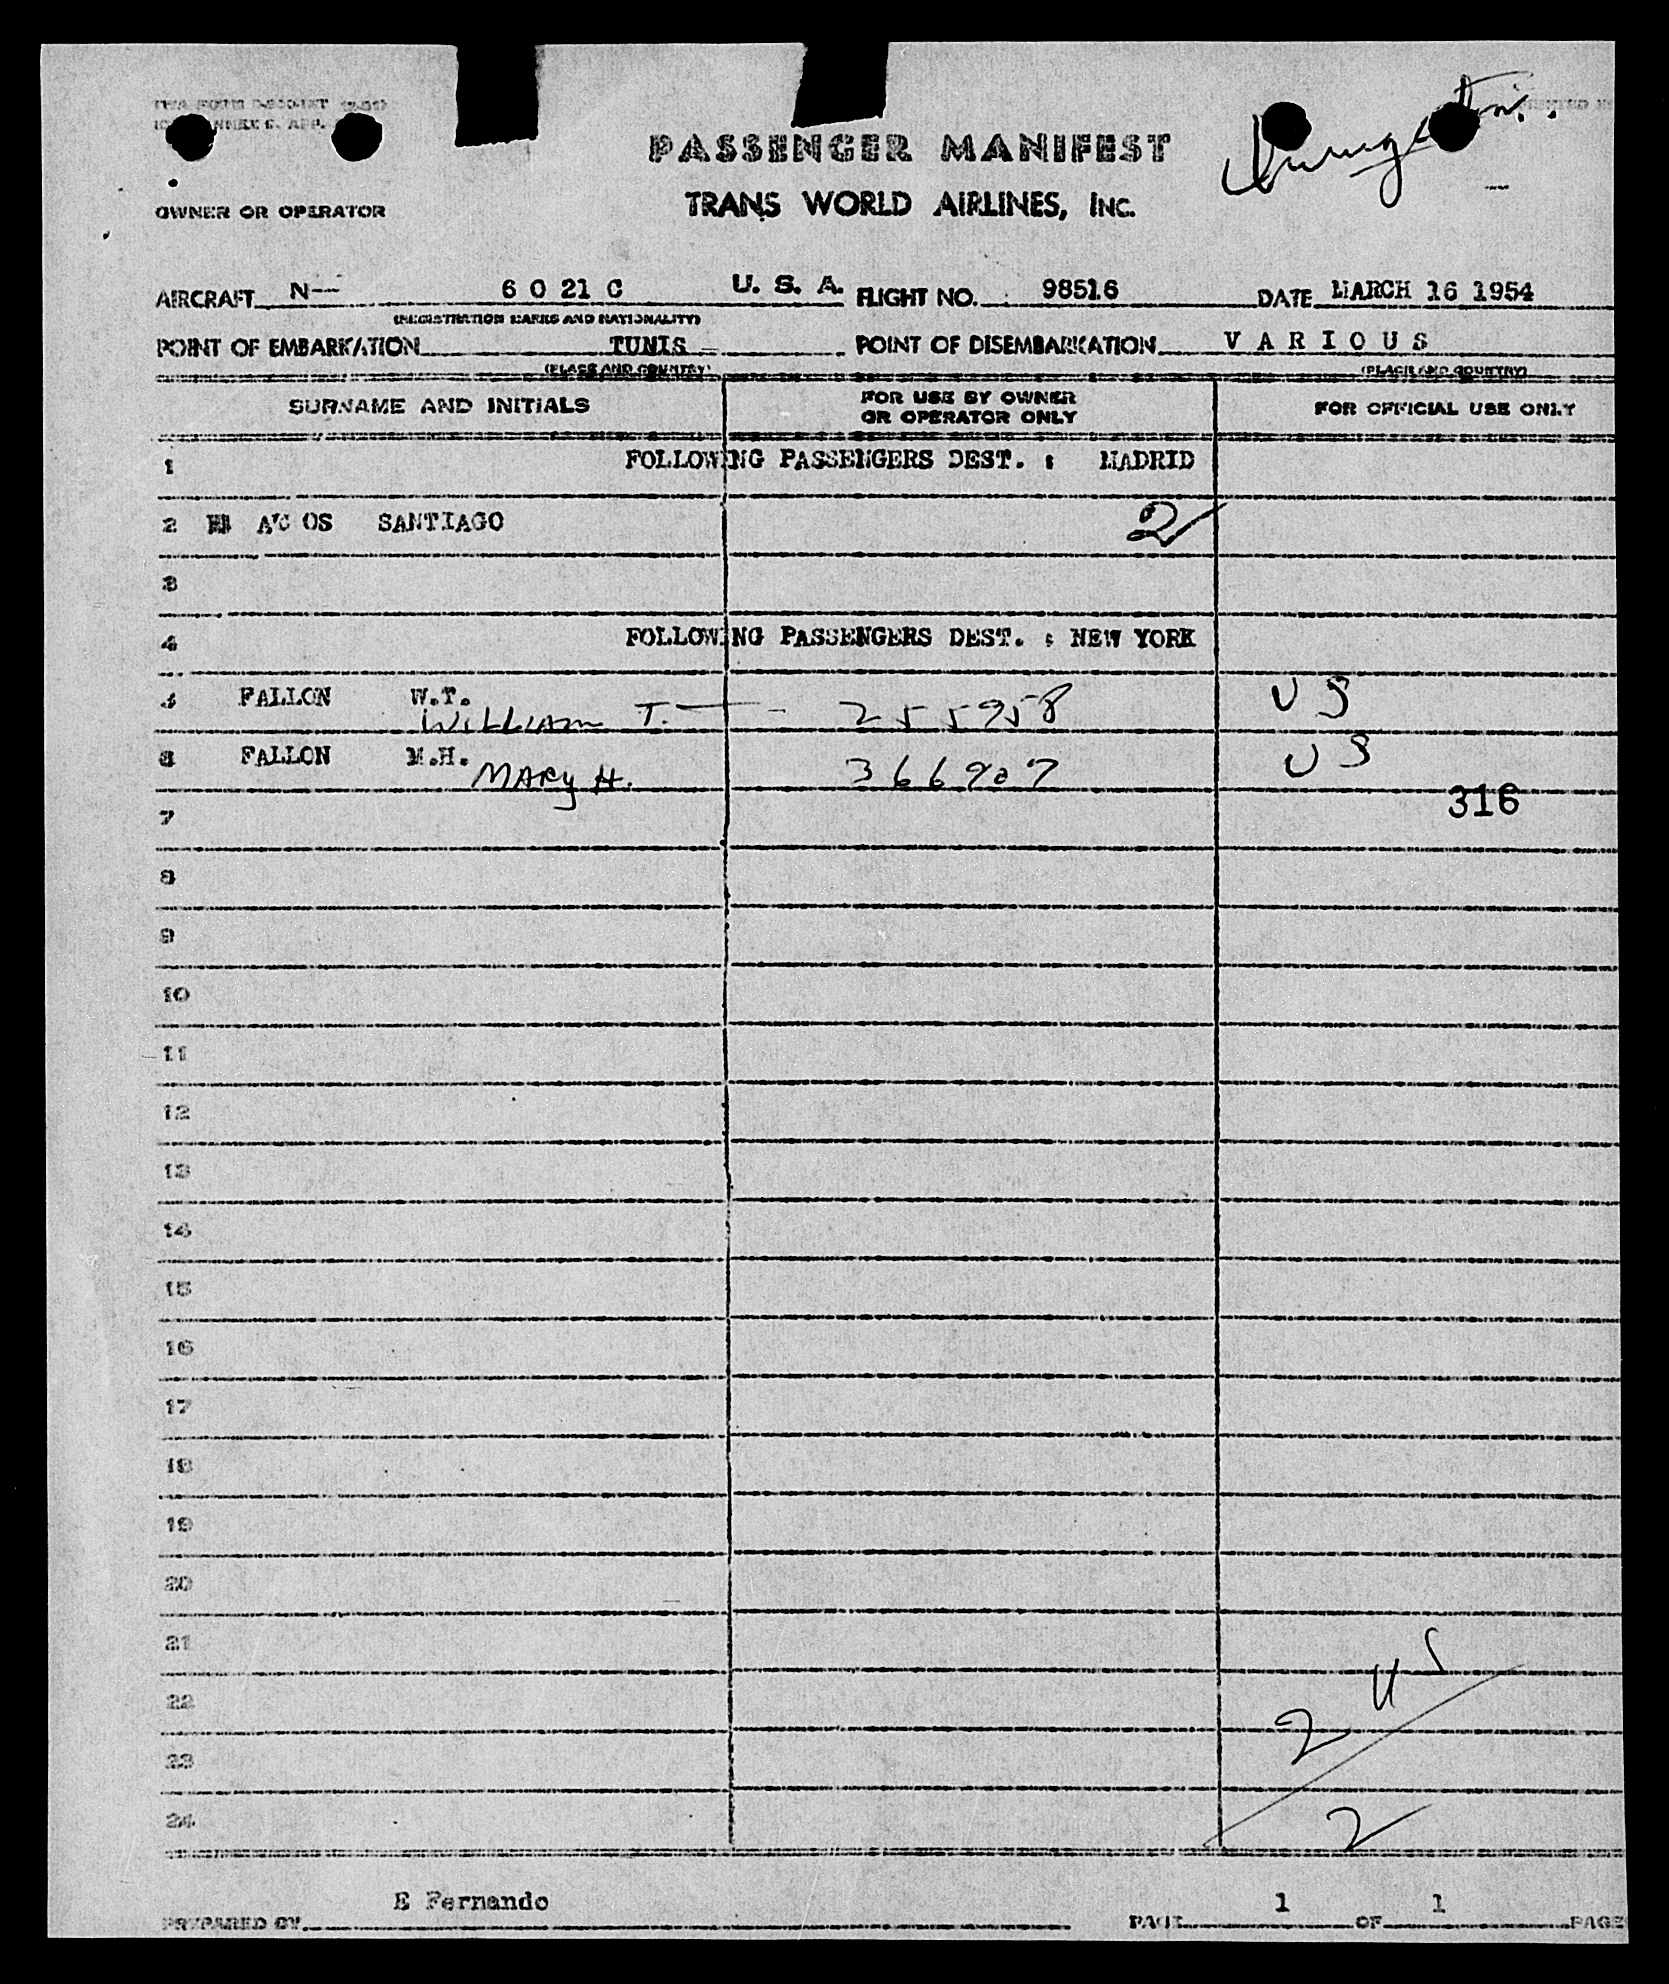 PASSENGER MANIFEST
TRANS WORLD AIRLINES, INC.
OWNER OR OPERATOR
AIRCRAFT N-- 6 0 21 C U. S. A. FLIGHT NO. 98516 DATE MARCH 16 1954
(REGISTRATION MARKS AND NATIONALITY)
POINT OF EMBARKATION TUNIS POINT OF DISEMBARKATION V A R I O U S
(PLACE AND COUNTRY) (PLACE AND COUNTRY)
SURNAME AND INITIALS FOR USE BY OWNER OR OPERATOR ONLY FOR OFFICIAL USE ONLY
1 FOLLOWING PASSENGERS DEST. : MADRID
2 SANTIAGO 2
3
4 FOLLOWING PASSENGERS DEST. : NEW YORK
5 FALLON W.T. WILLIAM T. 255958 US
6 FALLON M.H. MARY H. 366907 US
316
7
8
9
10
11
12
13
14
15
16
17
18
19
20
21
22 2 US
23
24 2
E Fernando
PREPARED BY PAGE 1 OF 1 PAGE